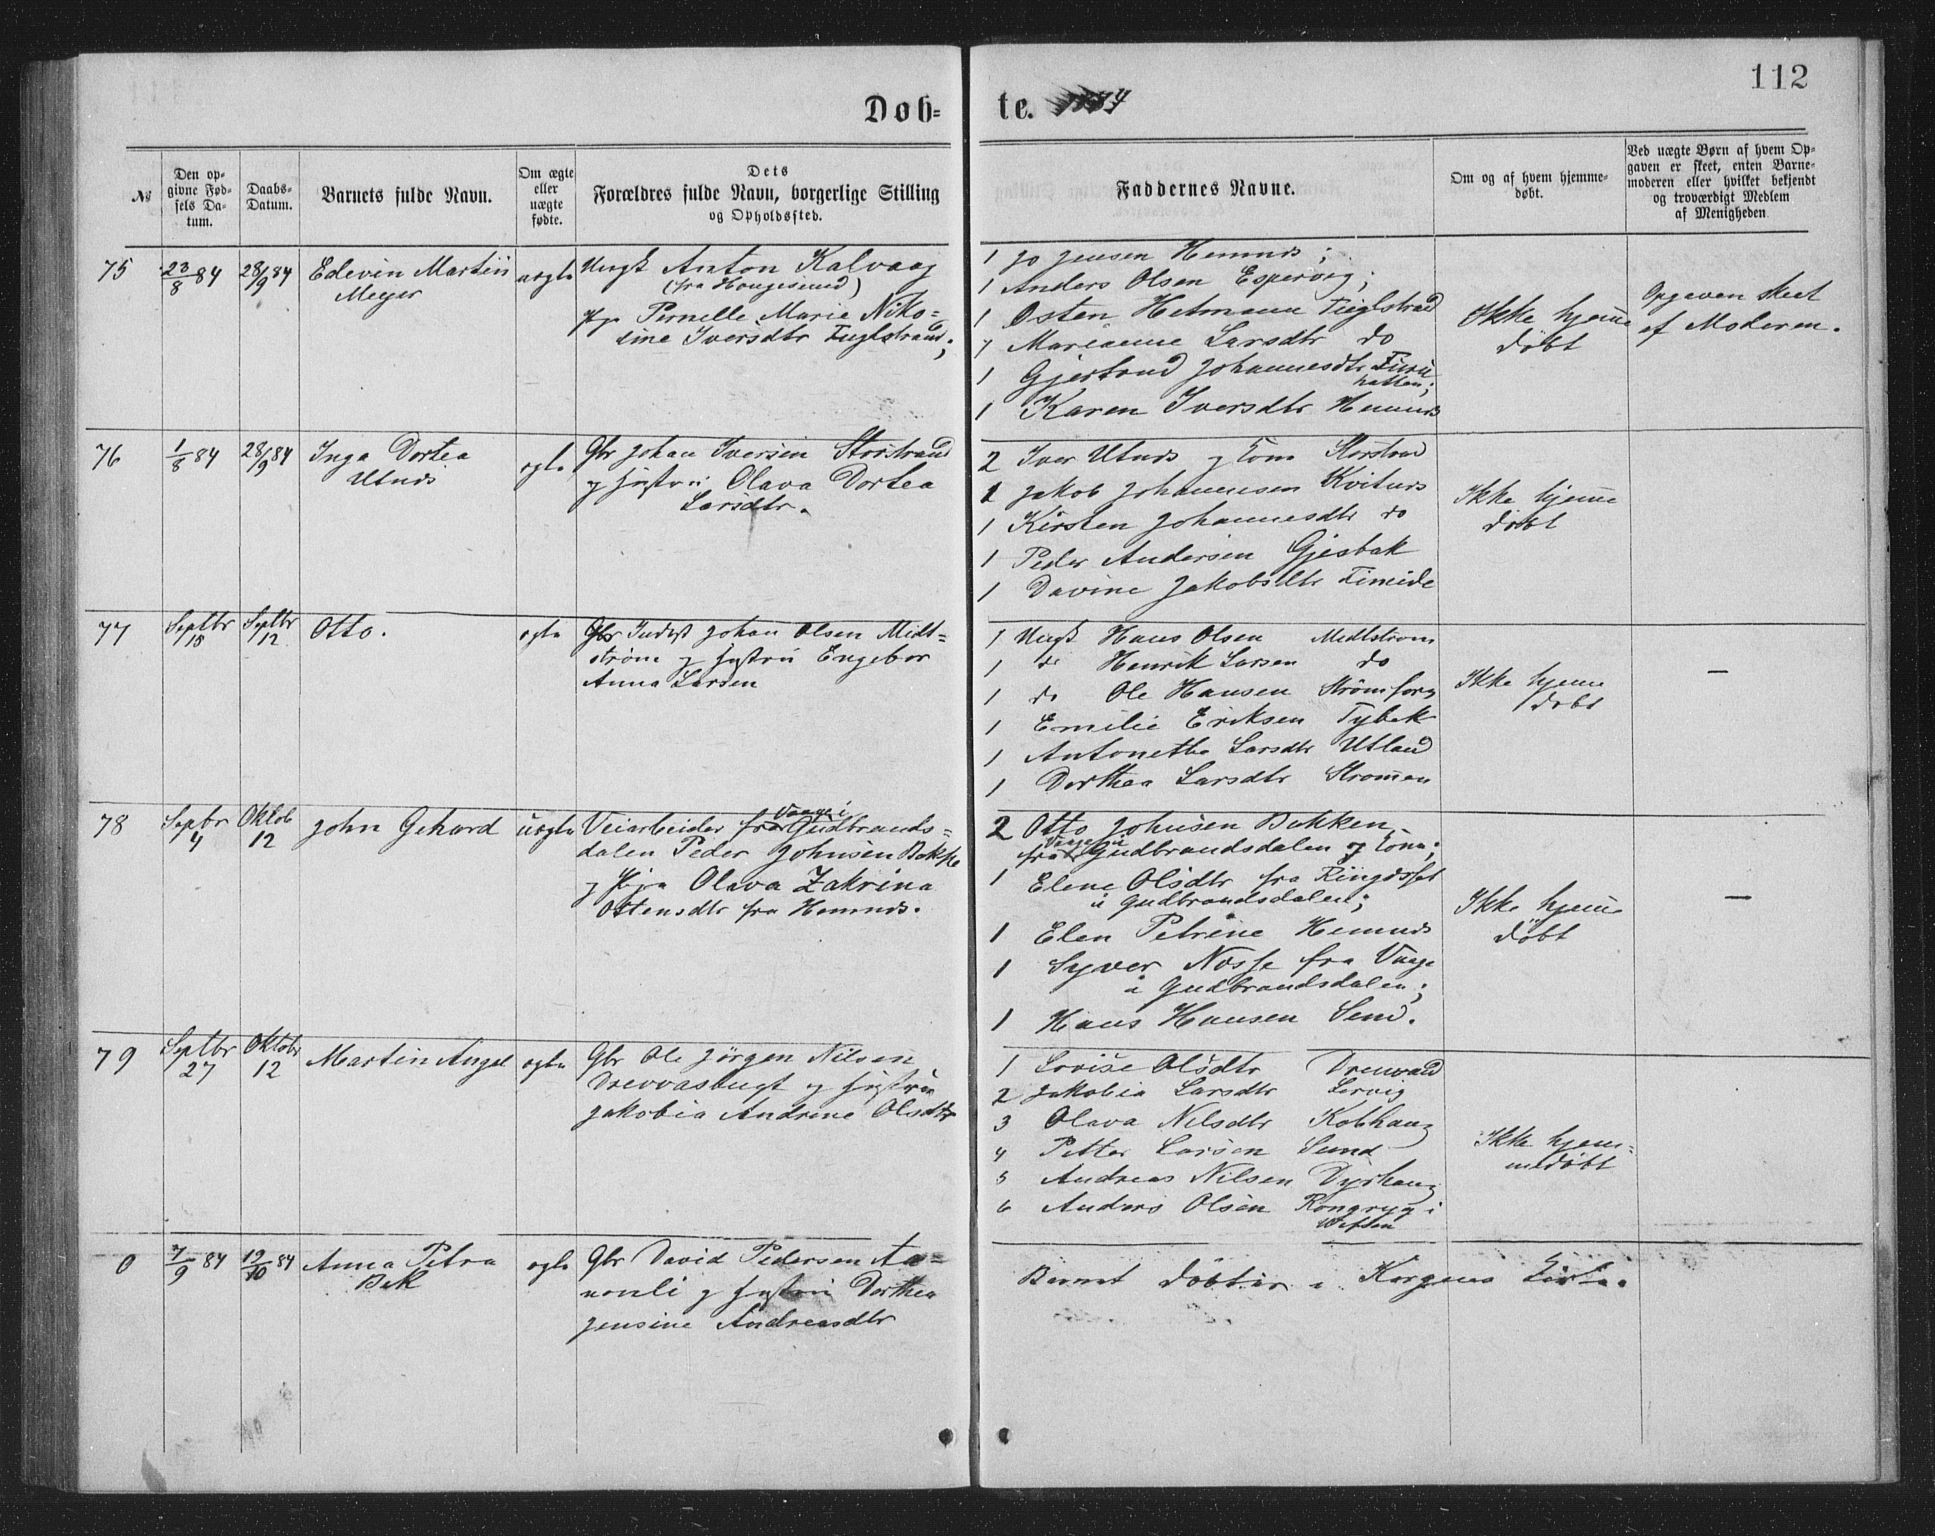 112
Døb= te.
№
Den op-
givne Fød-
sels Da-
tum.
Daabs-
Datum.
Barnets fulde Navn.
Om ægte
eller
uægte
fødte.
Dets
Forældres fulde Navn, borgerlige Stilling
og Opholdssted.
Faddernes Navne.
Om og af hvem hjemme-
døbt.
Ved uægte Børn af hvem Op-
gaven er skeet, enten Barne-
moderen eller hvilket bekjendt
og troværdigt Medlem
af Menigheden
75
23/8 84
28/9 84
Edevin Martin
Meyer
uægte
Ungk Anton Kalvaag
(fra Haugesund)
Pernelle Marie Niko=
line Iversdtr Fuglstrand;
1 Jo Jensen Hemnes;
1 Anders Olsen Espervig;
1 Osten Hetmann Fuglstrand
1 Marianne Larsdtr do
1 Gjertrud Johannesdtr Furu
hatten;
1 Karen Iversdtr Hemnes
Ikke hjemme
døbt
Opgaven skeet
af Moderen.
76
1/8 84
28/9 84
Inga Dortea
Utnes
ægte
Gbr Johan Iversen Storstrand
og Hustru Olava Dortea
Larsdtr.
2 Iver Utnes og Kone Storstrand
1 Jakob Johannesen Kvitnes
1 Kirsten Johannesdtr do
1 Peder Andersen Gjesbak
1 Davine Jakobsdtr
Ikke hjemme
døbt
77
Septbr
18
Septbr
12
Otto.
ægte
Gbr Indst Johan Olsen Midt=
strøm og Hustru Engebor
Anna Larsen
1 Ungk Hans Olsen Midtstrøm
1 do Henrik Larsen do
1 do Ole Hansen Strømfors
1 Emilie Eriksen Tybek
1 Antonette Larsdtr Utland
1 Dorthea Larsdtr Strømen
Ikke hjemme
døbt
—
78
Sepbr
4
Oktob
12
John Gehard
uægte
Vaage i
Veiarbeider fra Gudbrands=
dalen Peder Johnsen Bakke
og Pige Olava Zakrina
Ottensdtr fra Hemnes.
2 Otto Johnsen Bakken
Vaage i
fra Gudbrandsdalen og Kone;
1 Elene Olsdtr fra Ringdsset
i Gudbrandsdalen;
1 Elen Petrine Hemnes
1 Syver fra Vaage
i Gudbrandsdalen;
1 Hans Hansen Sund.
Ikke hjemme
døbt
—
79
Septbr
27
Oktobr
12
Martin Angel
ægte
Gbr Ole Jørgen Nilsen
Drevvasbugt og Hustru
Jakobia Andrine Olsdtr
1 Lovise Olsdtr Drevvand
2 Jakobia Larsdtr Lervig
3 Olava Nilsdtr Kobhaug
4 Petter Larsen Sund
5 Andreas Nilsen Dyrhaug
6 Anders Olsen i
Vefsen
Ikke hjem=
medøbt
0
7/9 84
12/10 84
Anna Petra
Bek
ægte
Gbr David Pedersen Aa=
nonli og Hustru Dorthea
Jensine Andreasdtr
Barnet døbt i Korgens Kirke.